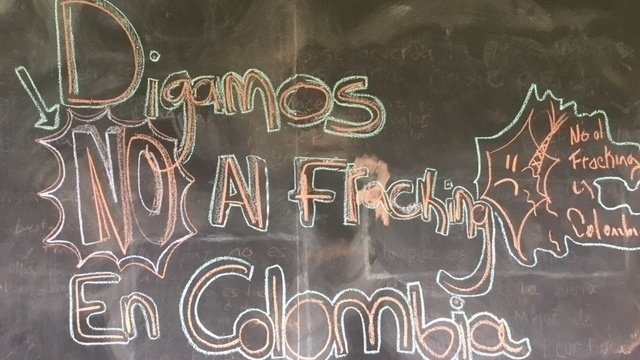 Digamos
NO Al Fracking
En Colombia
No al
Fracking
en
Colombi